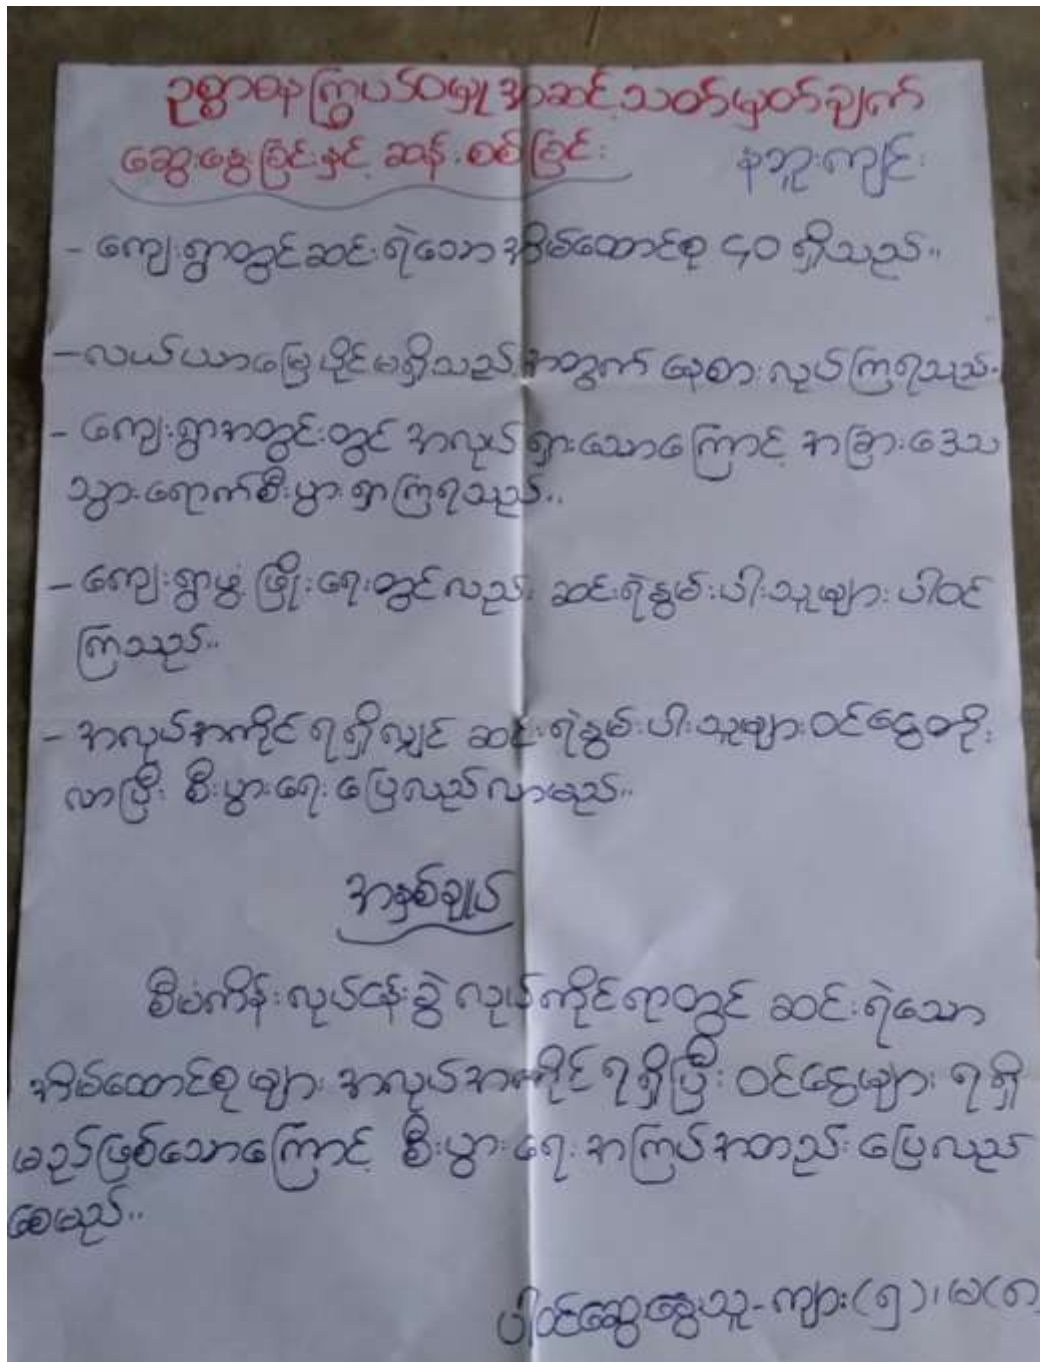 ဥစ္စာဓနကြွယ်ဝမှုအဆင့်သတ်မှတ်ချက်
ဆွေးနွေးခြင်းနှင့် ဆန်းစစ်ခြင်း နဘူးကျင်း
- ကျေးရွာတွင်ဆင်းရဲသော အိမ်ထောင်စု ၄၀ ရှိသည်။
- လယ်ယာမြေပိုင်မရှိသည့်အတွက် နေ့စားလုပ်ကြရသည်။
- ကျေးရွာအတွင်းတွင် အလုပ်ရှားသောကြောင့် အခြားဒေသ
သွားရောက်စီးပွားရှာကြရသည်။
- ကျေးရွာဖွံ့ဖြိုးရေးတွင်လည်း ဆင်းရဲနွမ်းပါးသူများ ပါဝင်
ကြသည်။
- အလုပ်အကိုင်ရရှိလျှင် ဆင်းရဲနွမ်းပါးသူများဝင်ငွေတိုး
လာပြီး စီးပွားရေးပြေလည်လာမည်။
အနှစ်ချုပ်
စီမံကိန်းလုပ်ငန်းခွဲ လုပ်ကိုင်ရာတွင် ဆင်းရဲသော
အိမ်ထောင်စုများ အလုပ်အကိုင်ရရှိပြီး ဝင်ငွေများ ရရှိ
မည်ဖြစ်သောကြောင့် စီးပွားရေးအကြပ်အတည်း ပြေလည်
စေမည်။
ပါဝင်ဆွေးနွေးသူ-ကျား(၅)၊ မ(